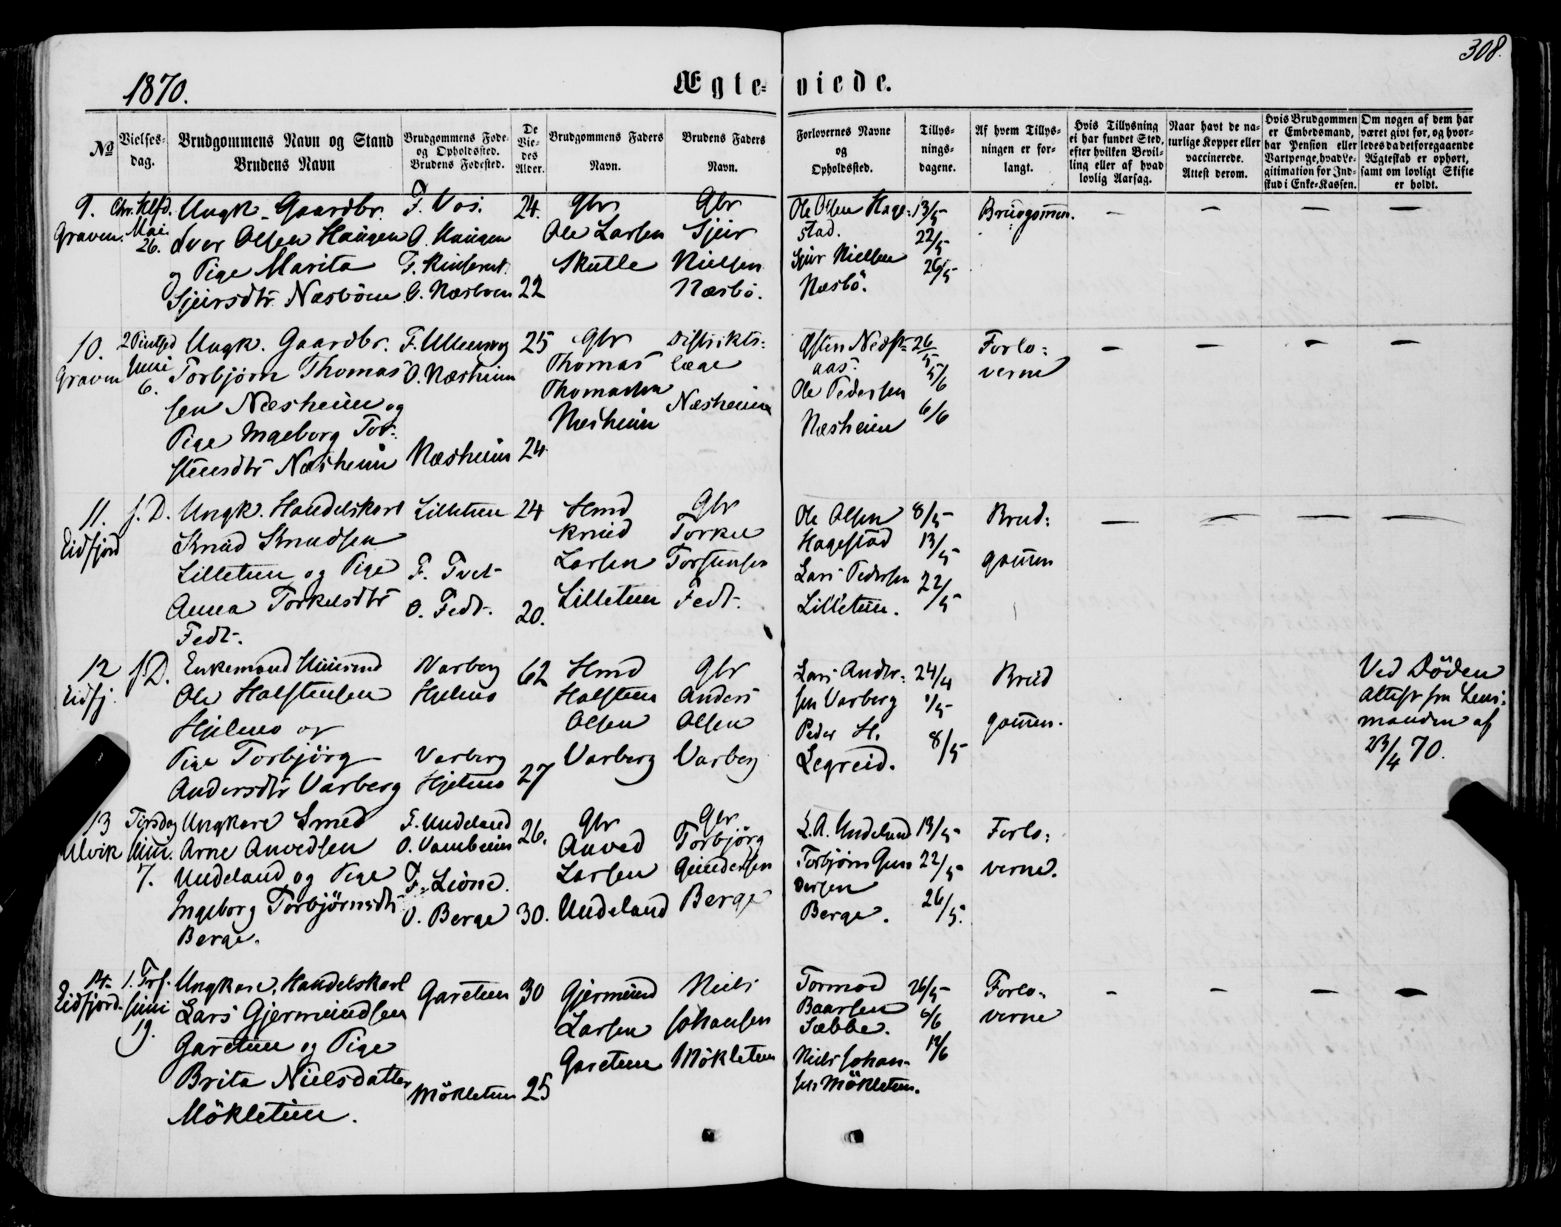 308.
1870.
Ægte= viede.
No
Vielses-
dag.
Brudgommens Navn og Stand
Brudens Navn
Brudgommens Føde-
og Opholdssted.
Brudens Fødested.
De
Vie-
des
Alder.
Brudgommens Faders
Navn.
Brudens Faders
Navn.
Forlovernes Navne
og
Opholdssted.
Tillys-
nings-
dagene.
Af hvem Tillys-
ningen er for-
langt.
Hvis Tillysning
ei har fundet Sted,
efter hvilken Bevil-
ling eller af hvad
lovlig Aarsag.
Naar havt de na-
turlige Kopper eller
vaccinerede.
Attest derom.
Hvis Brudgommen
er Embedsmand,
har Pension eller
Vartpenge, hvad Le-
gitimation for Ind-
skud i Enke-Kassen.
Om nogen af dem har
været givt før, og hvor-
ledes da det foregaaende
Ægteskab er ophørt,
samt om lovligt Skifte
er holdt.
9.
Graven.
Chr. Helfd.
Mai
26.
Ungk. Gaardbr.
Iver Olsen Haugen
og Pige Marita
Sjursdtr Næsbøen
F. Vos.
O. Haugen
F. Kinservk.
O. Næsboen
24.
22
Gbr
Ole Larsen
Skutle
Gbr
Sjur
Nielsen
Næsbö.
Ole Olsen Hage-
stad.
Sjur Nielsen
Næsbö.
13/5
22/5
26/5
Brudgommen.
10.
Graven
2 Pintsed
Juni
6.
Ungk. Gaardbr.
Torbjørn Thomas
sen Næsheim og
Pige Ingeborg Tor-
steinsdtr Næsheim
F. Ullensvg
O. Næsheim
Næsheim
25
24
Gbr
Thomas
Thomassen
Næsheim
Distrikts-
læge
Næsheim
Østen Nedst-
aas.
Ole Pedersen
Næsheim
26/5
5/6
6/6
Forlo-
verne
11.
Eidfjord
s. D.
Ungk. Handelskarl
Knud Knudsen
Lilletun og Pige
Anna Torkelsdtr
Fedt.
Lilletun
F. Tvet
O. Fedt.
24
20.
Hmd
Knud
Larsen
Lilletun
Gbr
Torkel
Torstensen
Fedt.
Ole Olsen
Hagestad
Lars Pedersen
Lilletun.
8/5
13/5
22/5
Brud-
gommen
12
Eidfj.
s. D.
Enkemand Huusmd
Ole Halstensen
Hjelmo og
Pige Torbjörg
Andersdtr Varberg
Varberg
Hjelmo
Varberg
Hjelmo
62
27
Hmd
Halsten
Olsen
Varberg
Gbr
Anders
Olsen
Varberg
Lars Ander-
sen Varberg
Peder H.
Legreid.
24/4
1/5
8/5
Brud
gommen.
Ved Döden
Attest fra Lens-
manden af
23/4 70.
13
Ulvik
Tirsdag
Juni
7.
Ungkarl Smed
Arne Anvedsen
Undeland og Pige
Ingeborg Torbjørnsdtr
Berge.
F. Undeland
O. Vambeim
F. Lione.
O. Berge
26.
30.
Gbr
Anved
Larsen
Undeland
Gbr
Torbjörg
Gundersen
Berge
L. A. Undeland
Torbjörn Gun
dersen
Berge.
13/5
22/5
26/5.
Forlo-
verne.
14
Eidfjord.
1. Tref.
Juni
19.
Ungkarl, Handelskarl
Lars Gjermundsen
Garetun og Pige
Brita Nielsdatter
Mökletun.
Garetun
Mökletun
30
25
Gjermund
Larsen
Garetun
Niels
Johansen
Mökletun
Tormod
Baarsen
Sæbbe.
Niels Johan-
sen Mökletun.
26/5
6/6
19/6
Forlo-
verne